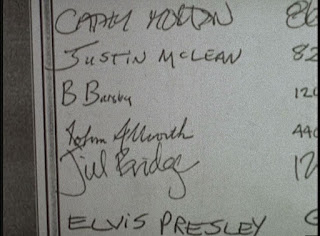 CATHY MORTON 86
JUSTIN MCLEAN 82
B 120
John Allworth 440
Jill Bridge 12
ELVIS PRESLEY